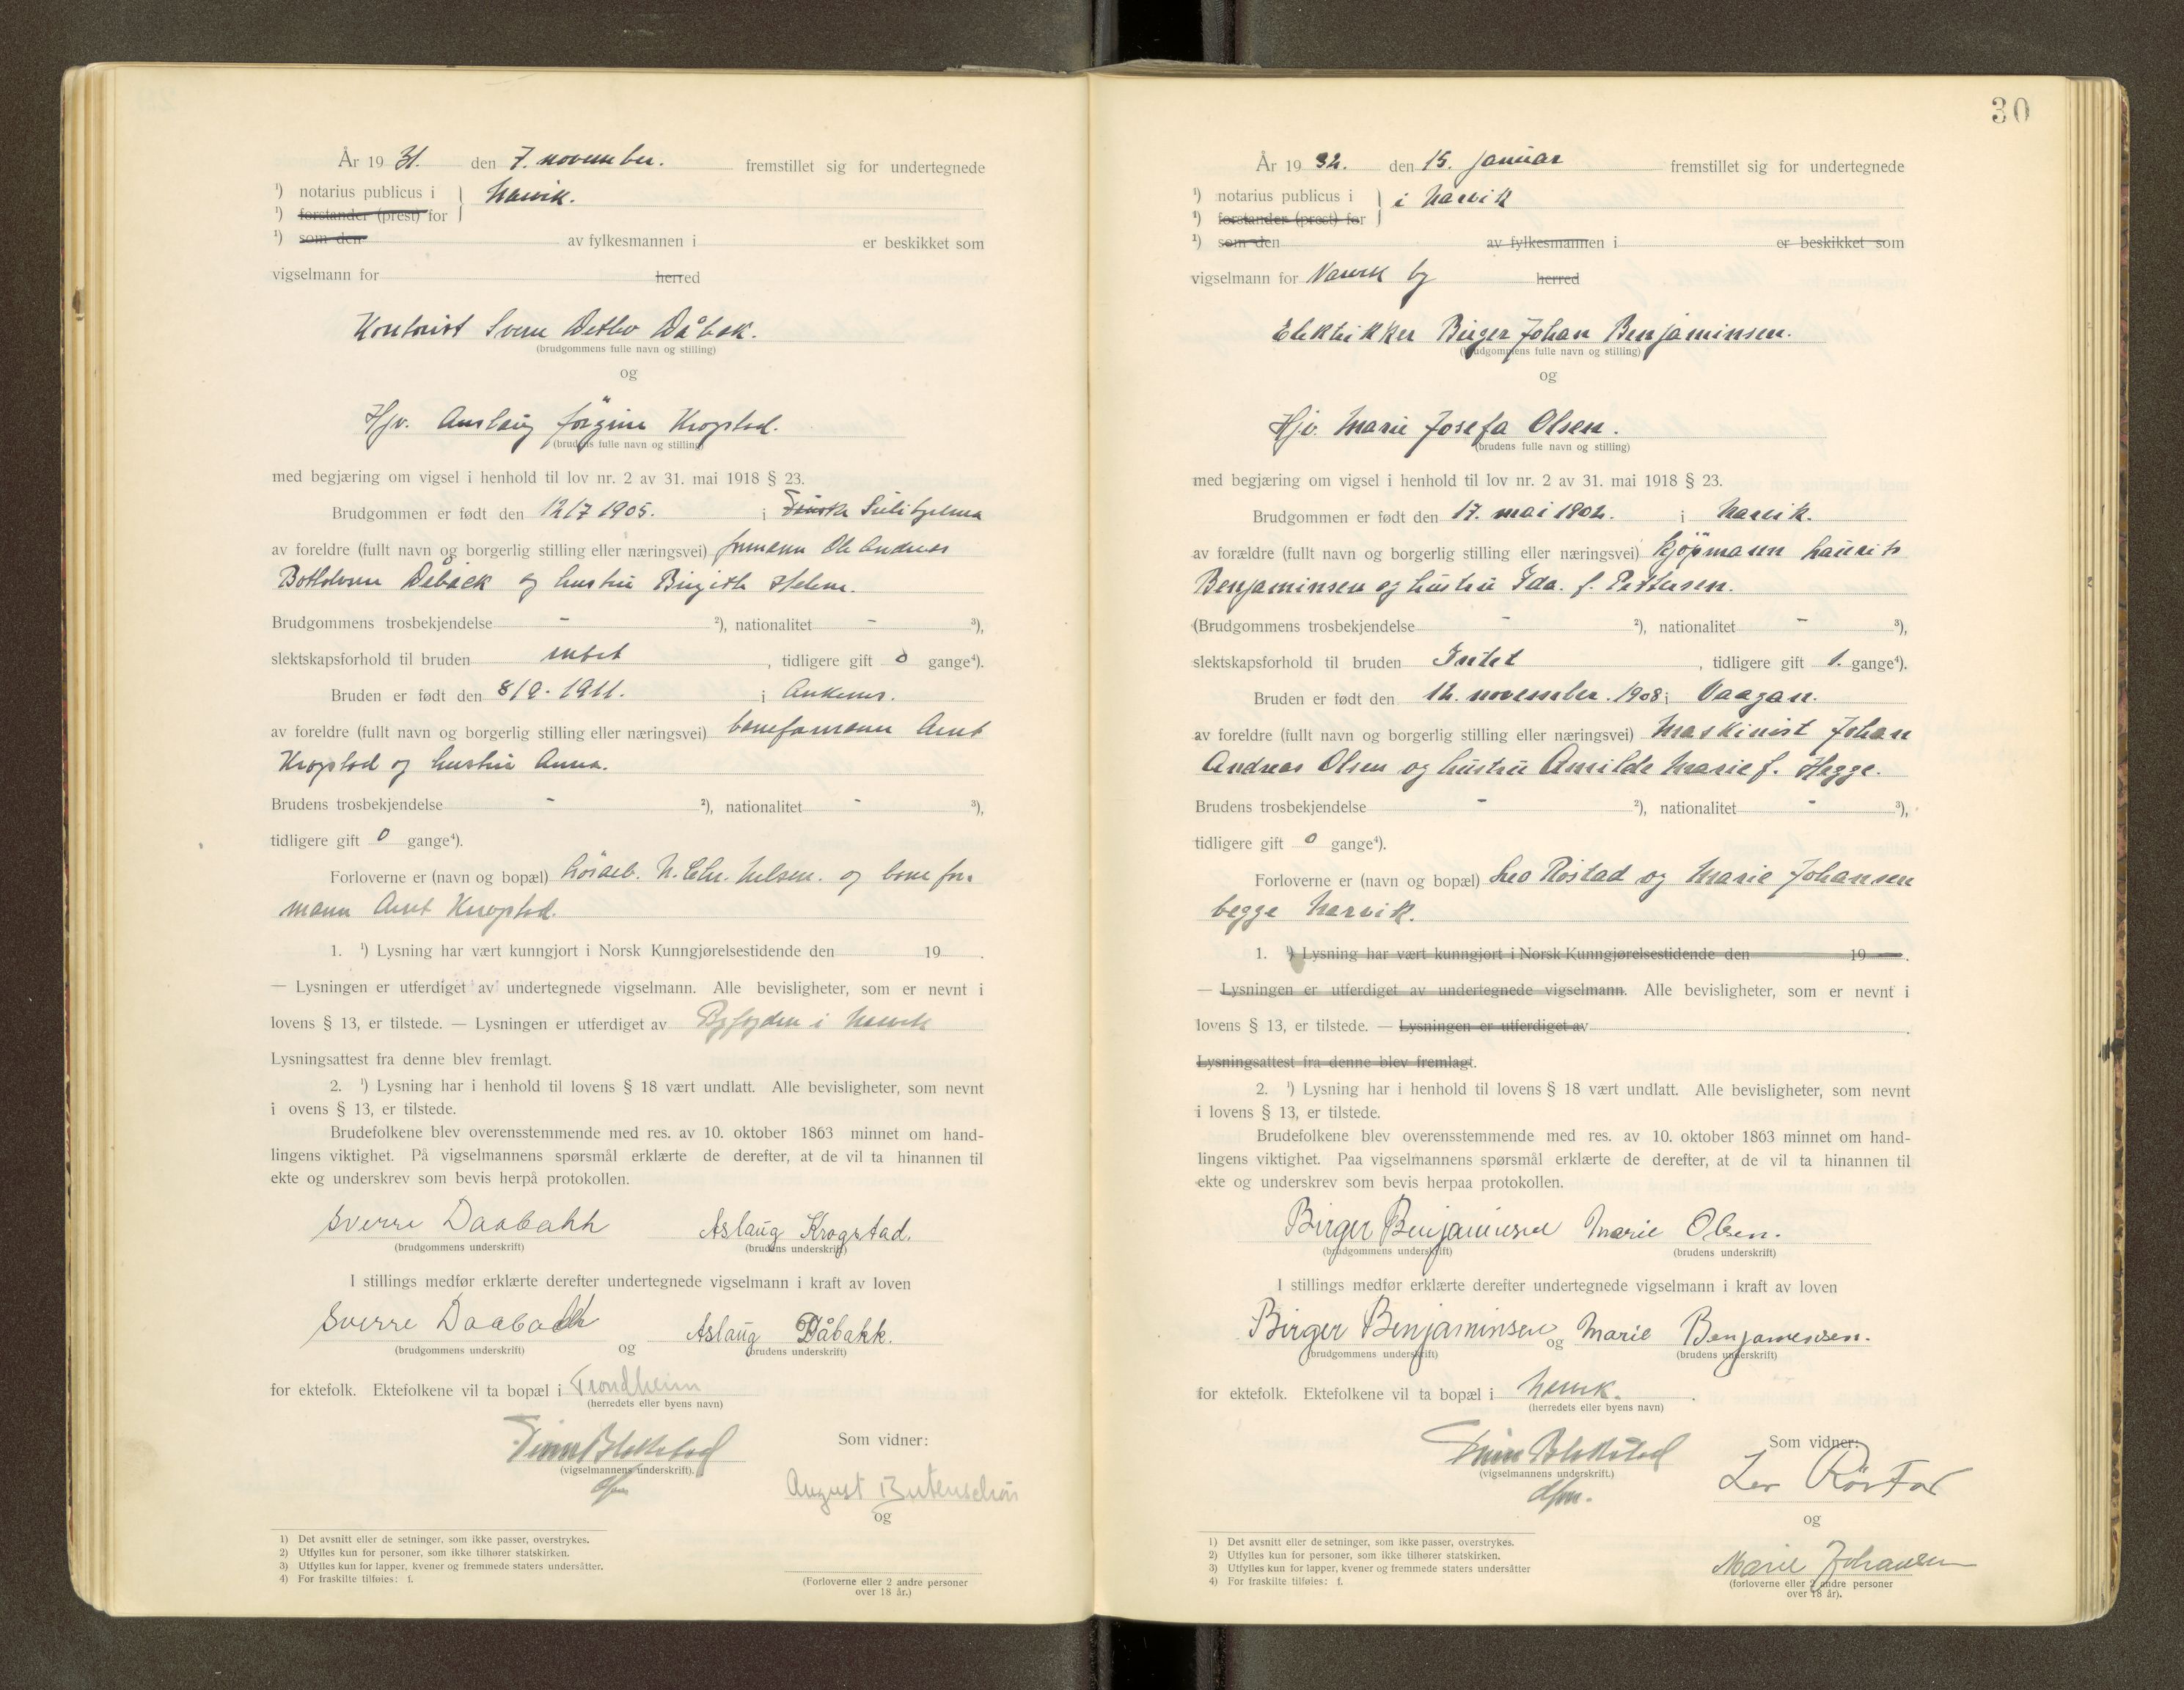 År 19 31. den 7. november. fremstillet sig for undertegnede
¹) notarius publicus i } Narvik.
¹) forstander (prest) for
¹) som den av fylkesmannen i er beskikket som
vigselmann for herred
Kontorist Sverre Detlev Dåbak.
(brudgommens fulle navn og stilling)
og
Hjv. Auslaug Jørgine Krogstad.
(brudens fulle navn og stilling)
med begjæring om vigsel i henhold til lov nr. 2 av 31. mai 1918 § 23.
Brudgommen er født den 12/7 1905. i Sulitjelma
av foreldre (fullt navn og borgerlig stilling eller næringsvei) formann Ole Andreas
Dåback og hustru Birgith Helene.
Brudgommens trosbekjendelse - ²), nationalitet - ³),
slektskapsforhold til bruden intet , tidligere gift 0 gange⁴).
Bruden er født den 8/9. 1911. i Ankenes.
av foreldre (fullt navn og borgerlig stilling eller næringsvei) baneformann Arnt
Krogstad og hustru Anna.
Brudens trosbekjendelse - ²), nationalitet - ³),
tidligere gift 0 gange⁴).
Forloverne er (navn og bopæl) N. Chr. Nilsen. og bane for-
mann Arnt Krogstad.
1. ¹) Lysning har vært kunngjort i Norsk Kunngjørelsestidende den 19 .
— Lysningen er utferdiget av undertegnede vigselmann. Alle bevisligheter, som er nevnt i
lovens § 13, er tilstede. — Lysningen er utferdiget av Byfogden i Narvik
Lysningsattest fra denne blev fremlagt.
2. ¹) Lysning har i henhold til lovens § 18 vært undlatt. Alle bevisligheter, som nevnt
i ovens § 13, er tilstede.
Brudefolkene blev overensstemmende med res. av 10. oktober 1863 minnet om hand-
lingens viktighet. På vigselmannens spørsmål erklærte de derefter, at de vil ta hinannen til
ekte og underskrev som bevis herpå protokollen.
Sverre Daabakk Aslaug Krogstad.
(brudgommens underskrift) (brudens underskrift)
I stillings medfør erklærte derefter undertegnede vigselmann i kraft av loven
Sverre Daabakk og Aslaug Dåbakk.
(brudgommens underskrift) (brudens underskrift)
for ektefolk. Ektefolkene vil ta bopæl i Trondheim
(herredets eller byens navn)
Finn Blakstad
(vigselmannens underskrift).
Som vidner:
August Butenschön
og
(Forloverne eller 2 andre personer
over 18 år.)
1) Det avsnitt eller de setninger, som ikke passer, overstrykes.
2) Utfylles kun for personer, som ikke tilhører statskirken.
3) Utfylles kun for lapper, kvener og fremmede staters undersåtter.
4) For fraskilte tilføies: f.
30
År 19 32. den 15. januar fremstillet sig for undertegnede
¹) notarius publicus i } i Narvik
¹) forstander (prest) for
¹) som den av fylkesmannen i er beskikket som
vigselmann for Narvik by herred
Elektrikker Birger Johan Benjaminsen.
(brudgommens fulle navn og stilling)
og
Hjv. Marie Josefa Olsen.
(brudens fulle navn og stilling)
med begjæring om vigsel i henhold til lov nr. 2 av 31. mai 1918 § 23.
Brudgommen er født den 17. mai 1902. i Narvik.
av forældre (fullt navn og borgerlig stilling eller næringsvei) kjøpmann Laurits
Benjaminsen og hustru Ida. f. Pettersen.
(Brudgommens trosbekjendelse - ²), nationalitet - ³),
slektskapsforhold til bruden Intet , tidligere gift 1. gange⁴).
Bruden er født den 12. november. 1908 i Vaagan.
av foreldre (fullt navn og borgerlig stilling eller næringsvei) Maskinist Johan
Andreas Olsen og hustru Amilde Marie f. Hegge.
Brudens trosbekjendelse - ²), nationalitet - ³),
tidligere gift 0 gange⁴).
Forloverne er (navn og bopæl) Leo Röstad og Marie Johansen
begge Narvik.
1. ¹) Lysning har vært kunngjort i Norsk Kunngjørelsestidende den 19 .
— Lysningen er utferdiget av undertegnede vigselmann. Alle bevisligheter, som er nevnt i
lovens § 13, er tilstede. — Lysningen er utferdiget av .
Lysningsattest fra denne blev fremlagt.
2. ¹) Lysning har i henhold til lovens § 18 vært undlatt. Alle bevisligheter, som nevnt
i lovens § 13, er tilstede.
Brudefolkene blev overensstemmende med res. av 10. oktober 1863 minnet om hand-
lingens viktighet. Paa vigselmannens spørsmål erklærte de derefter, at de vil ta hinannen til
ekte og underskrev som bevis herpaa protokollen.
Birger Benjaminsen Marie Olsen.
(brudgommens underskrift) (brudens underskrift)
I stillings medfør erklærte derefter undertegnede vigselmann i kraft av loven
Birger Benjaminsen og Marie Benjamensen.
(brudgommens underskrift) (brudens underskrift)
for ektefolk. Ektefolkene vil ta bopæl i Narvik.
(herredets eller byens navn)
Finn Blakstad
(vigselmannens underskrift.)
Som vidner:
Leo Röstad
og
Marie Johansen
(forloverne eller 2 andre personer
over 18 år).
1) Det avsnitt eller de setninger, som ikke passer, overstrykes.
2) Utfylles kun for personer, som ikke tilhører statskirken.
3) Utfylles kun for lapper, kvener og fremmede staters undersåtter
4) For fraskilte tilføies: f.